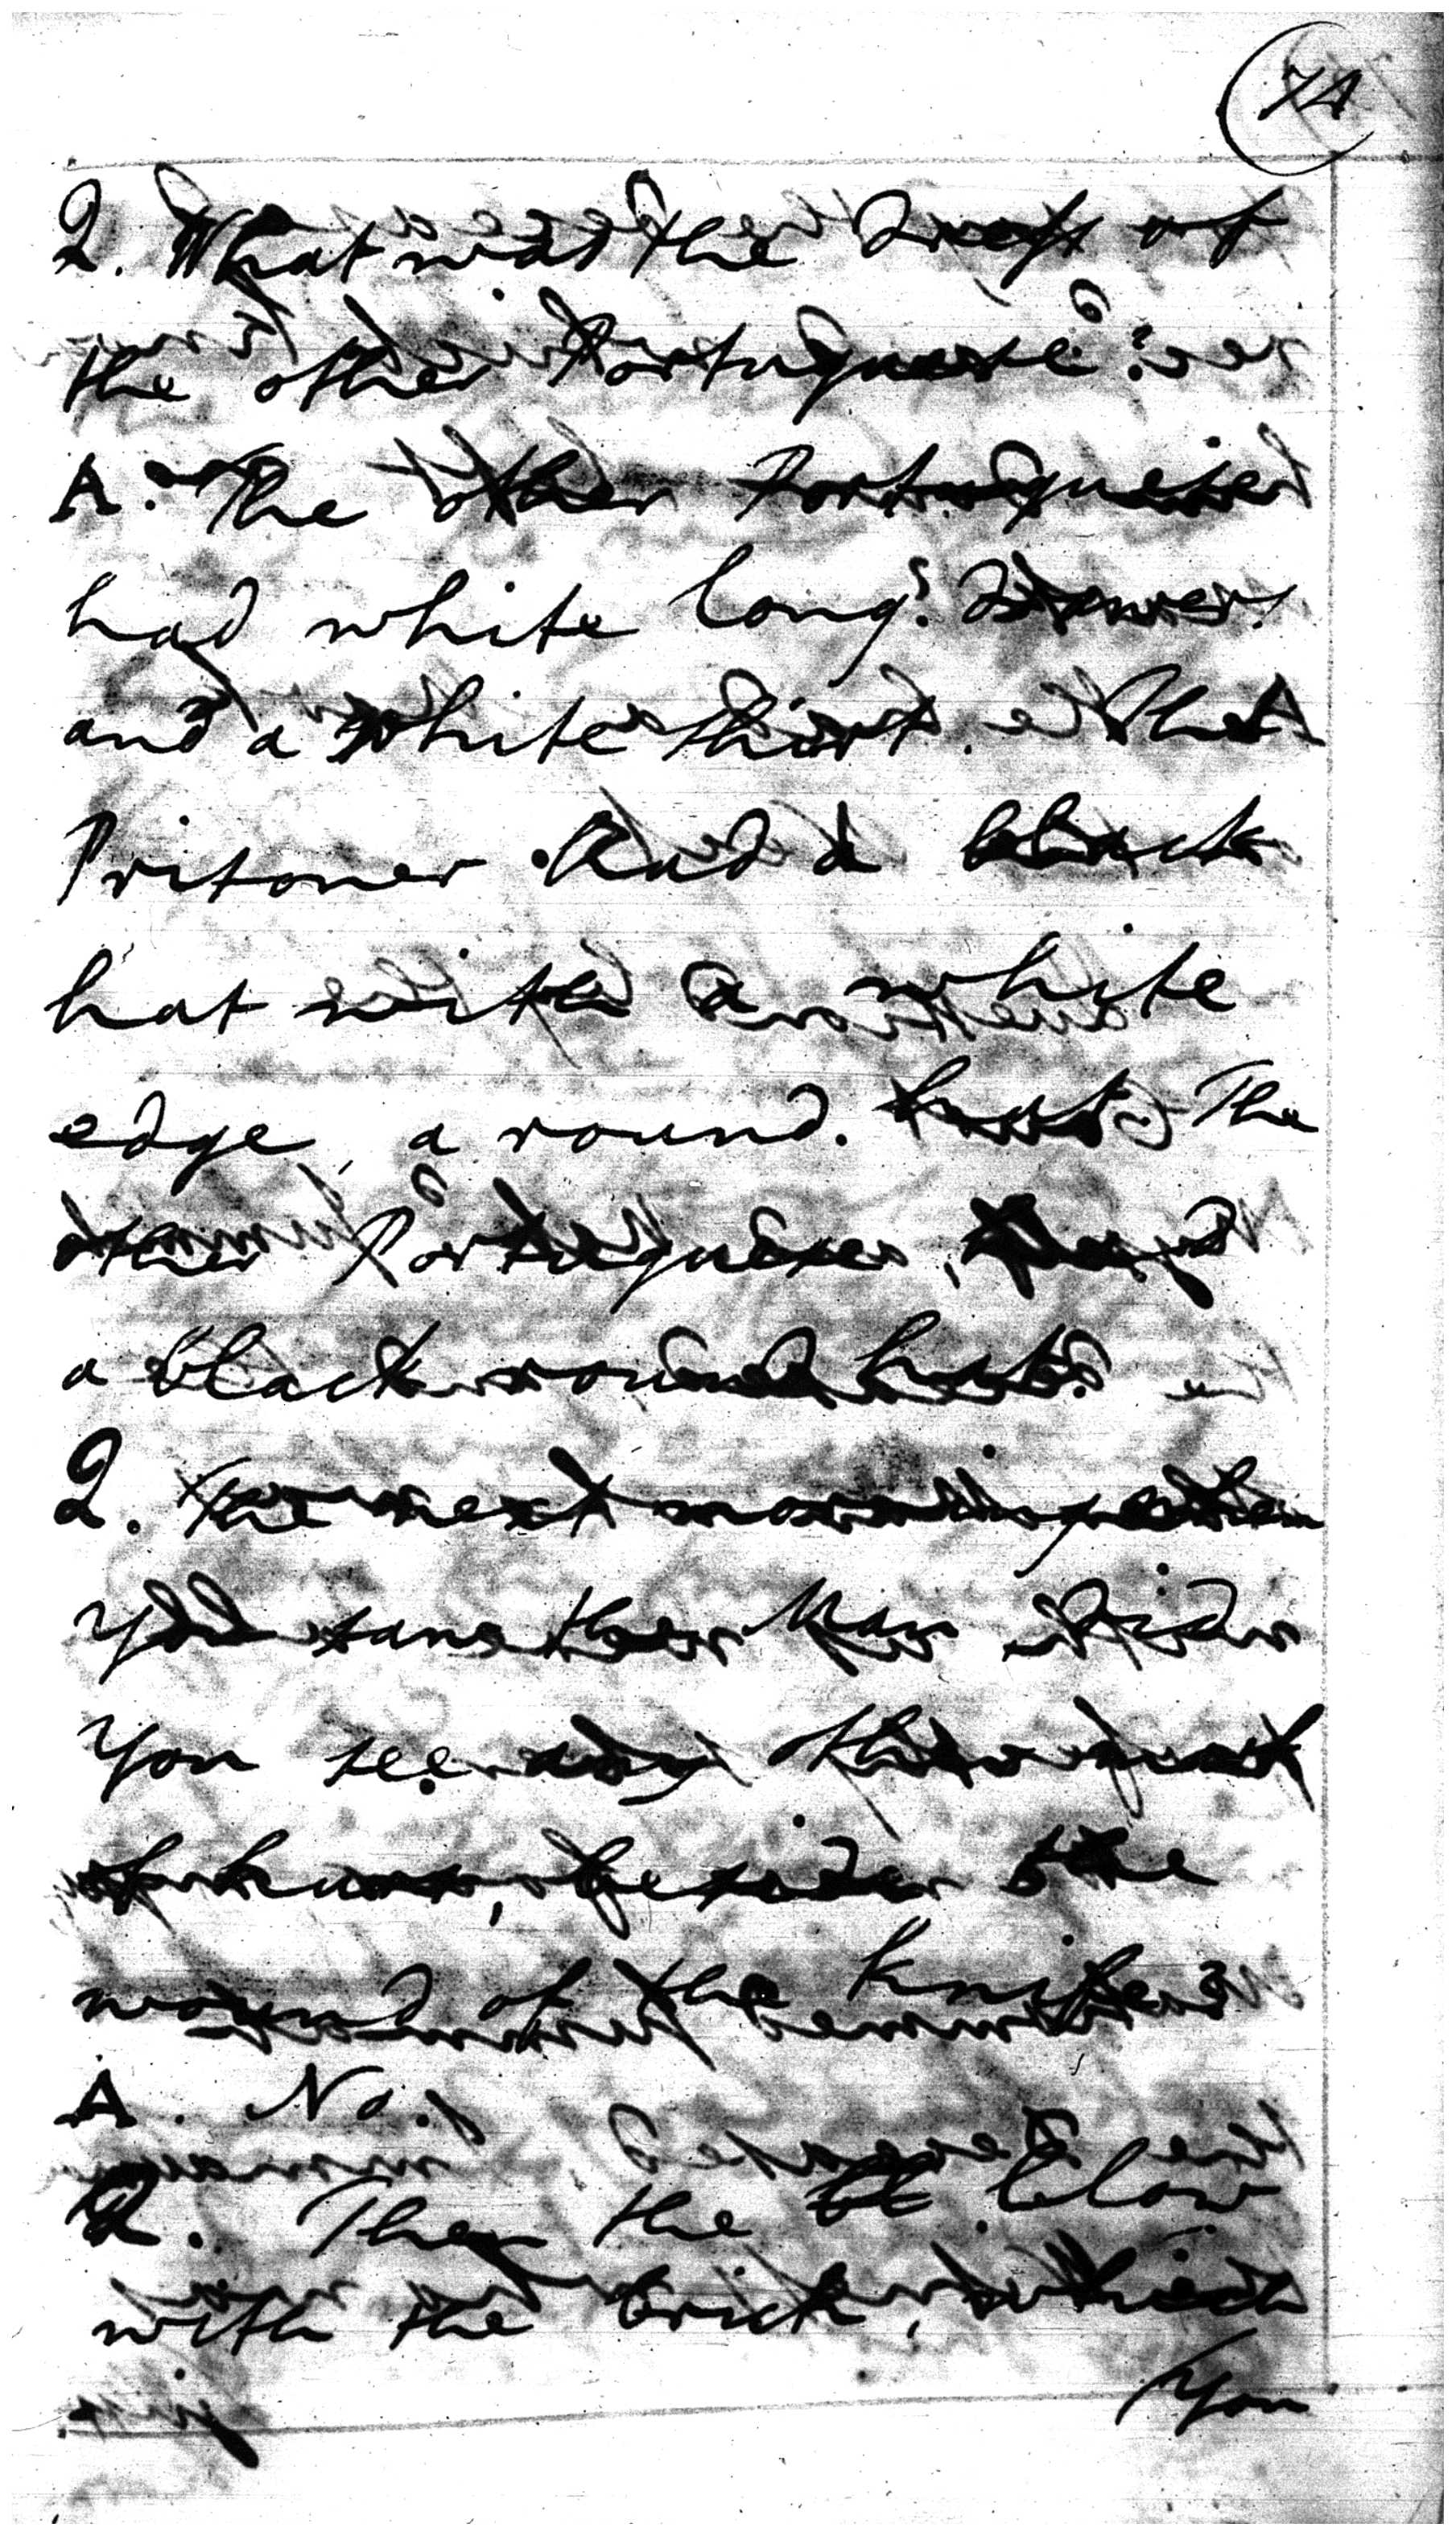 74
Q. What was the Dress of
the other Portuguese?
A. The other Portuguese
had white long
and a white shirt. The
Prisoner had a black
hat with a white
edge, a round. hat The
other Portuguese, had
a black round hat.
Q. The next morning when
You saw the Man Did
You see any other mark
of hurt, beside the
wound of the Knife?
A. No.
Q. Then the blow
with the brick, which
You